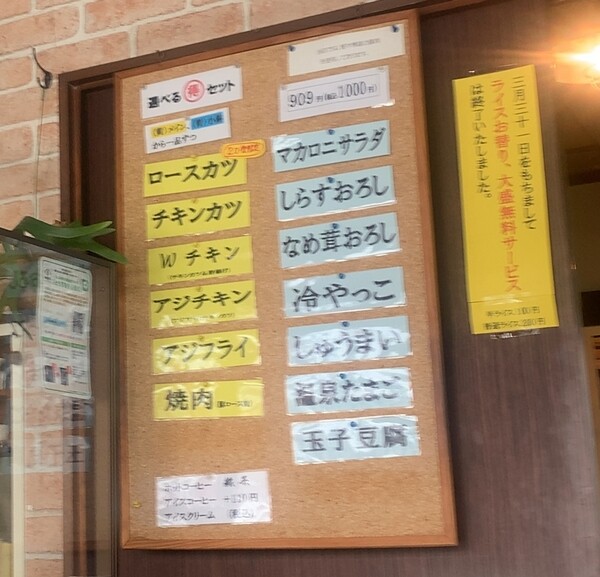 選べる㊝セット
909円(税込1000円)
(黄)メイン、(青)小鉢
から一品ずつ
ロースカツ
チキンカツ
Wチキン
アジチキン
アジフライ
焼肉
マカロニサラダ
しらすおろし
なめ茸おろし
冷やっこ
しゅうまい
温泉たまご
玉子豆腐
ホットコーヒー
アイスコーヒー +120円
アイスクリーム (税込)
三月三十一日をもちまして
ライスお替り、大盛無料サービス
は終了いたしました。